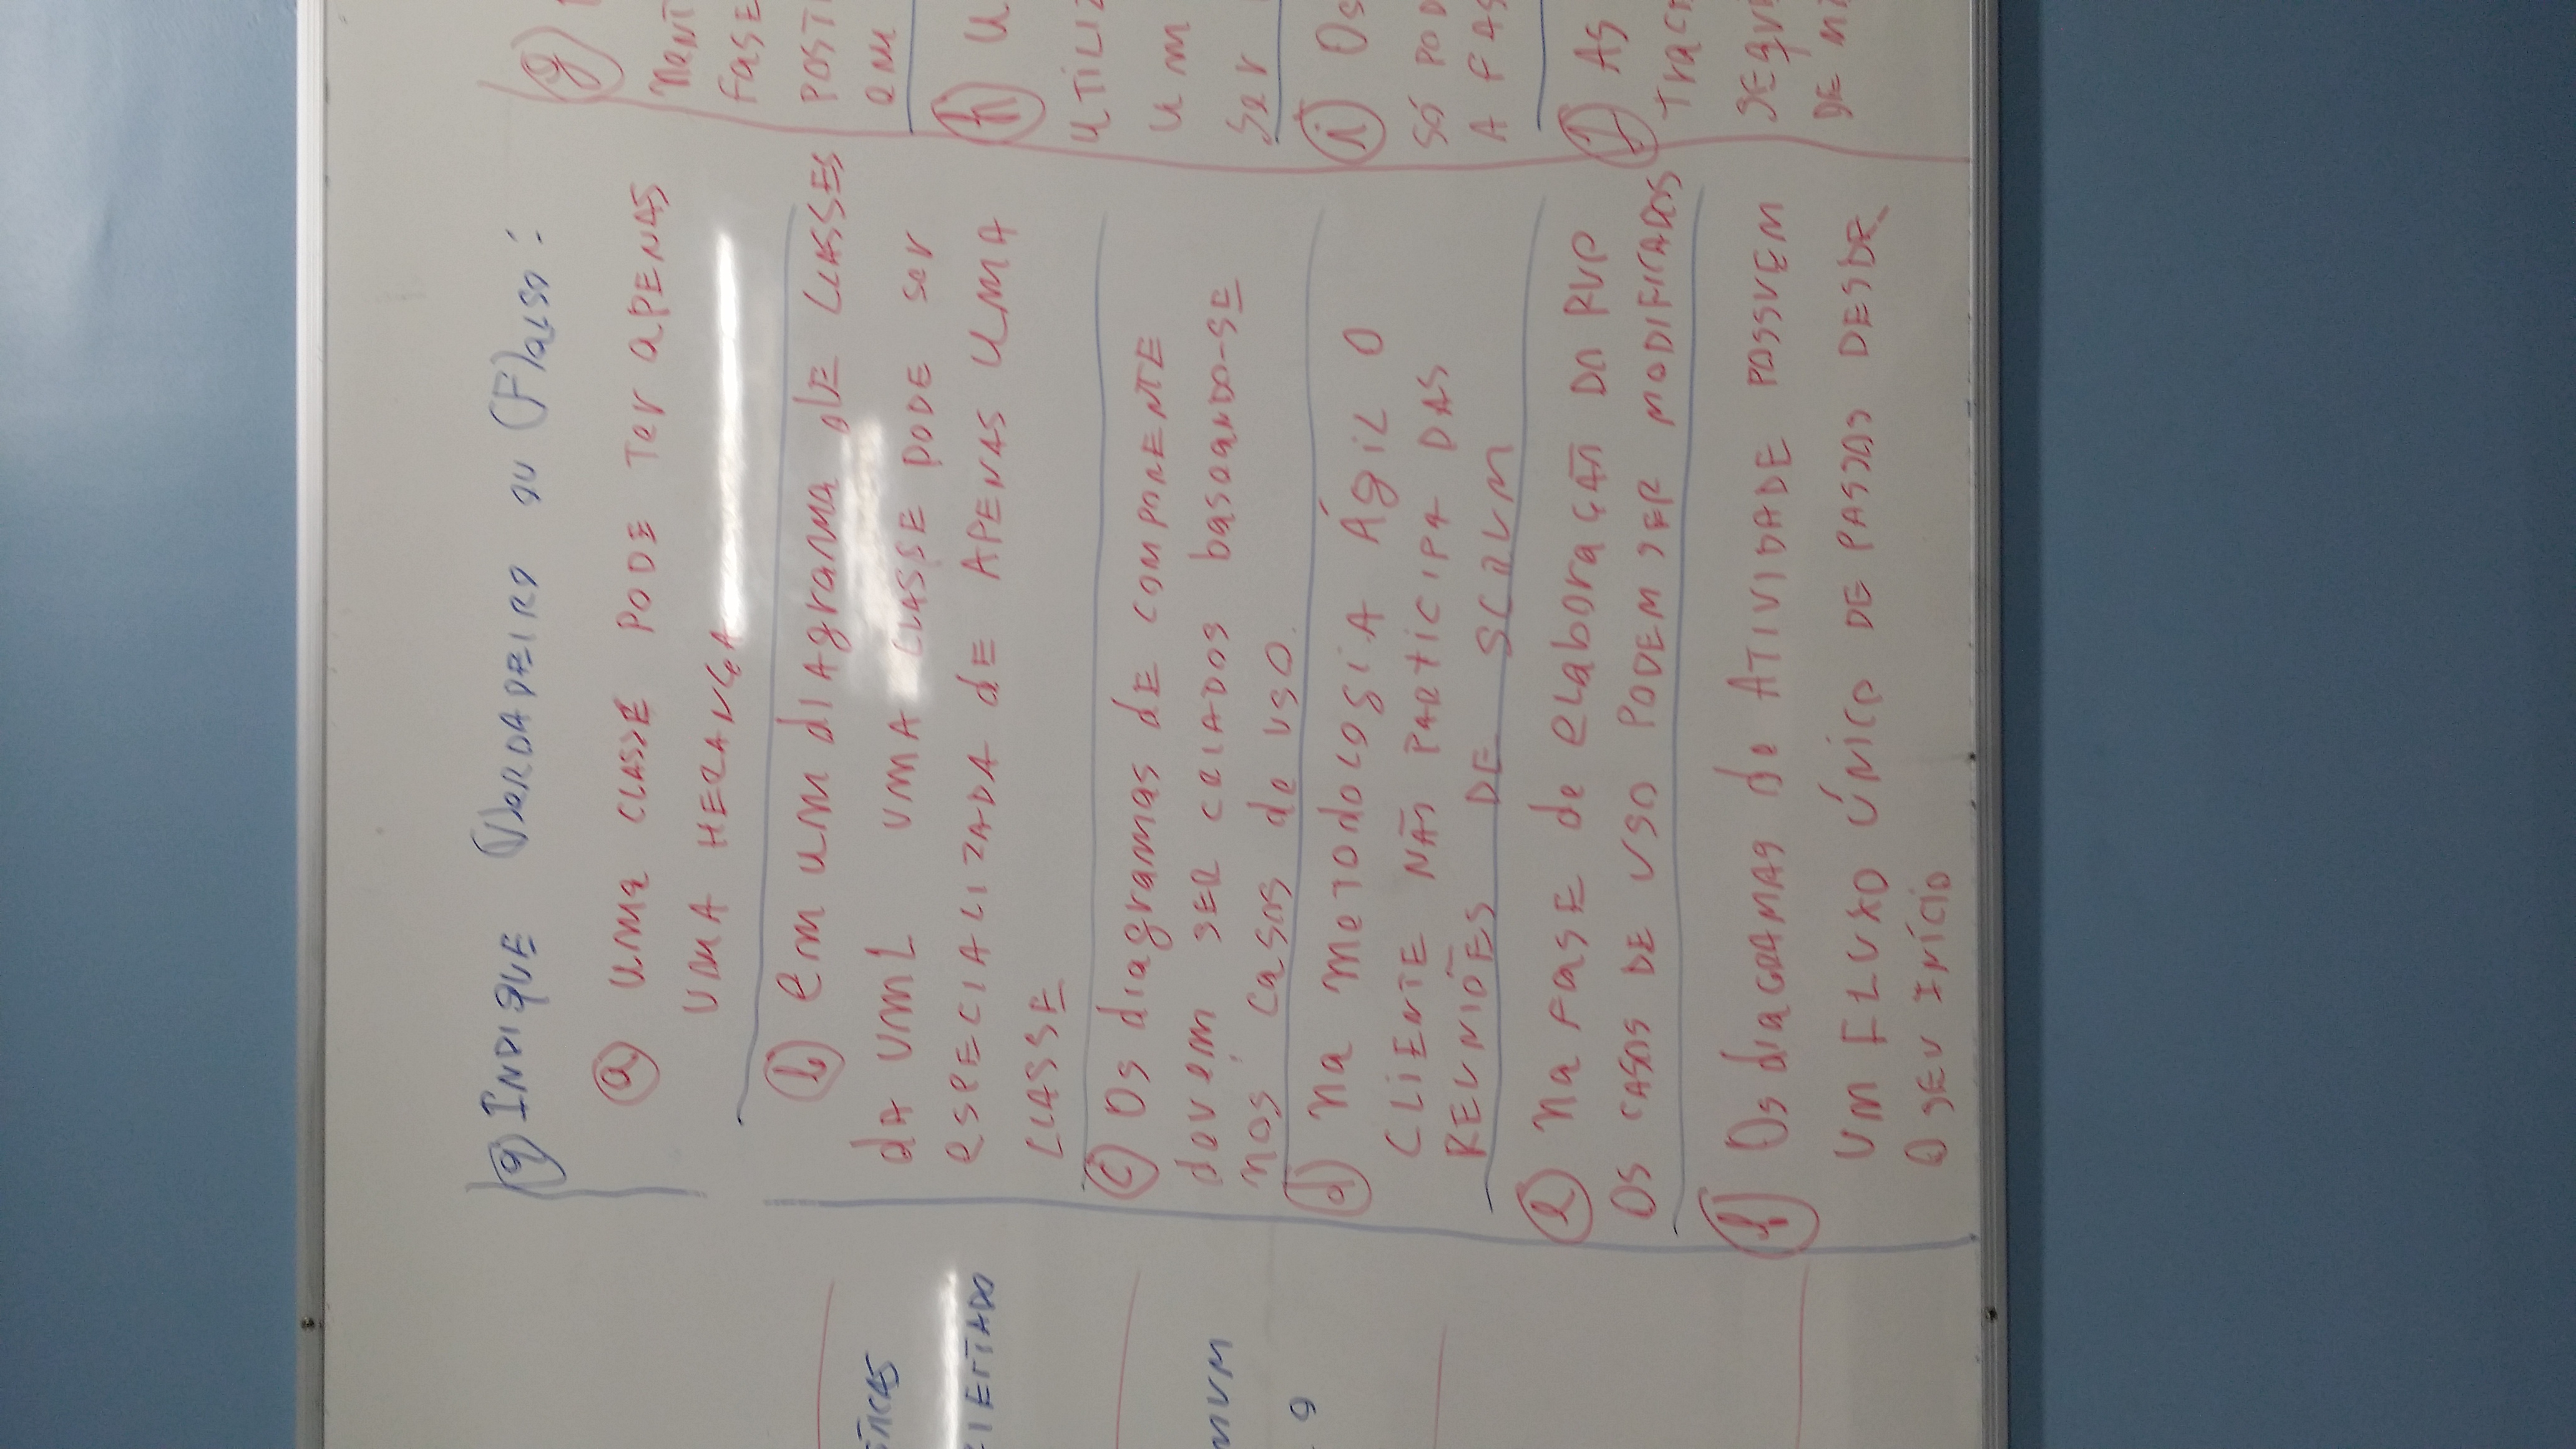 ÍTICAS
RIENTADO
MUM
9
9) INDIQUE (V)ERDADEIRO OU (F)ALSO:
a) UMA CLASSE PODE TER APENAS
UMA HERANÇA
b) em um diagrama de CLASSES
da UML UMA CLASSE PODE ser
especializada de APENAS UMA
CLASSE
c) Os diagramas de COMPONENTE
devem SER CRIADOS baseando-se
nos casos de uso.
d) na metodologia Ágil O
CLIENTE NÃO PARTICIPA DAS
REUNIÕES DE SCRUM
e) na FASE de elaboração DO RUP
OS CASOS DE USO PODEM SER MODIFICADOS
f) Os diagramas de ATIVIDADE POSSUEM
UM FLUXO ÚNICO DE PASSOS DESDE
O SEU INÍCIO
g)
ment
FASE
POST
em
h) U
UTILIZ
um
ser
i) Os
SÓ POD
A FAS
j) AS
SEQU